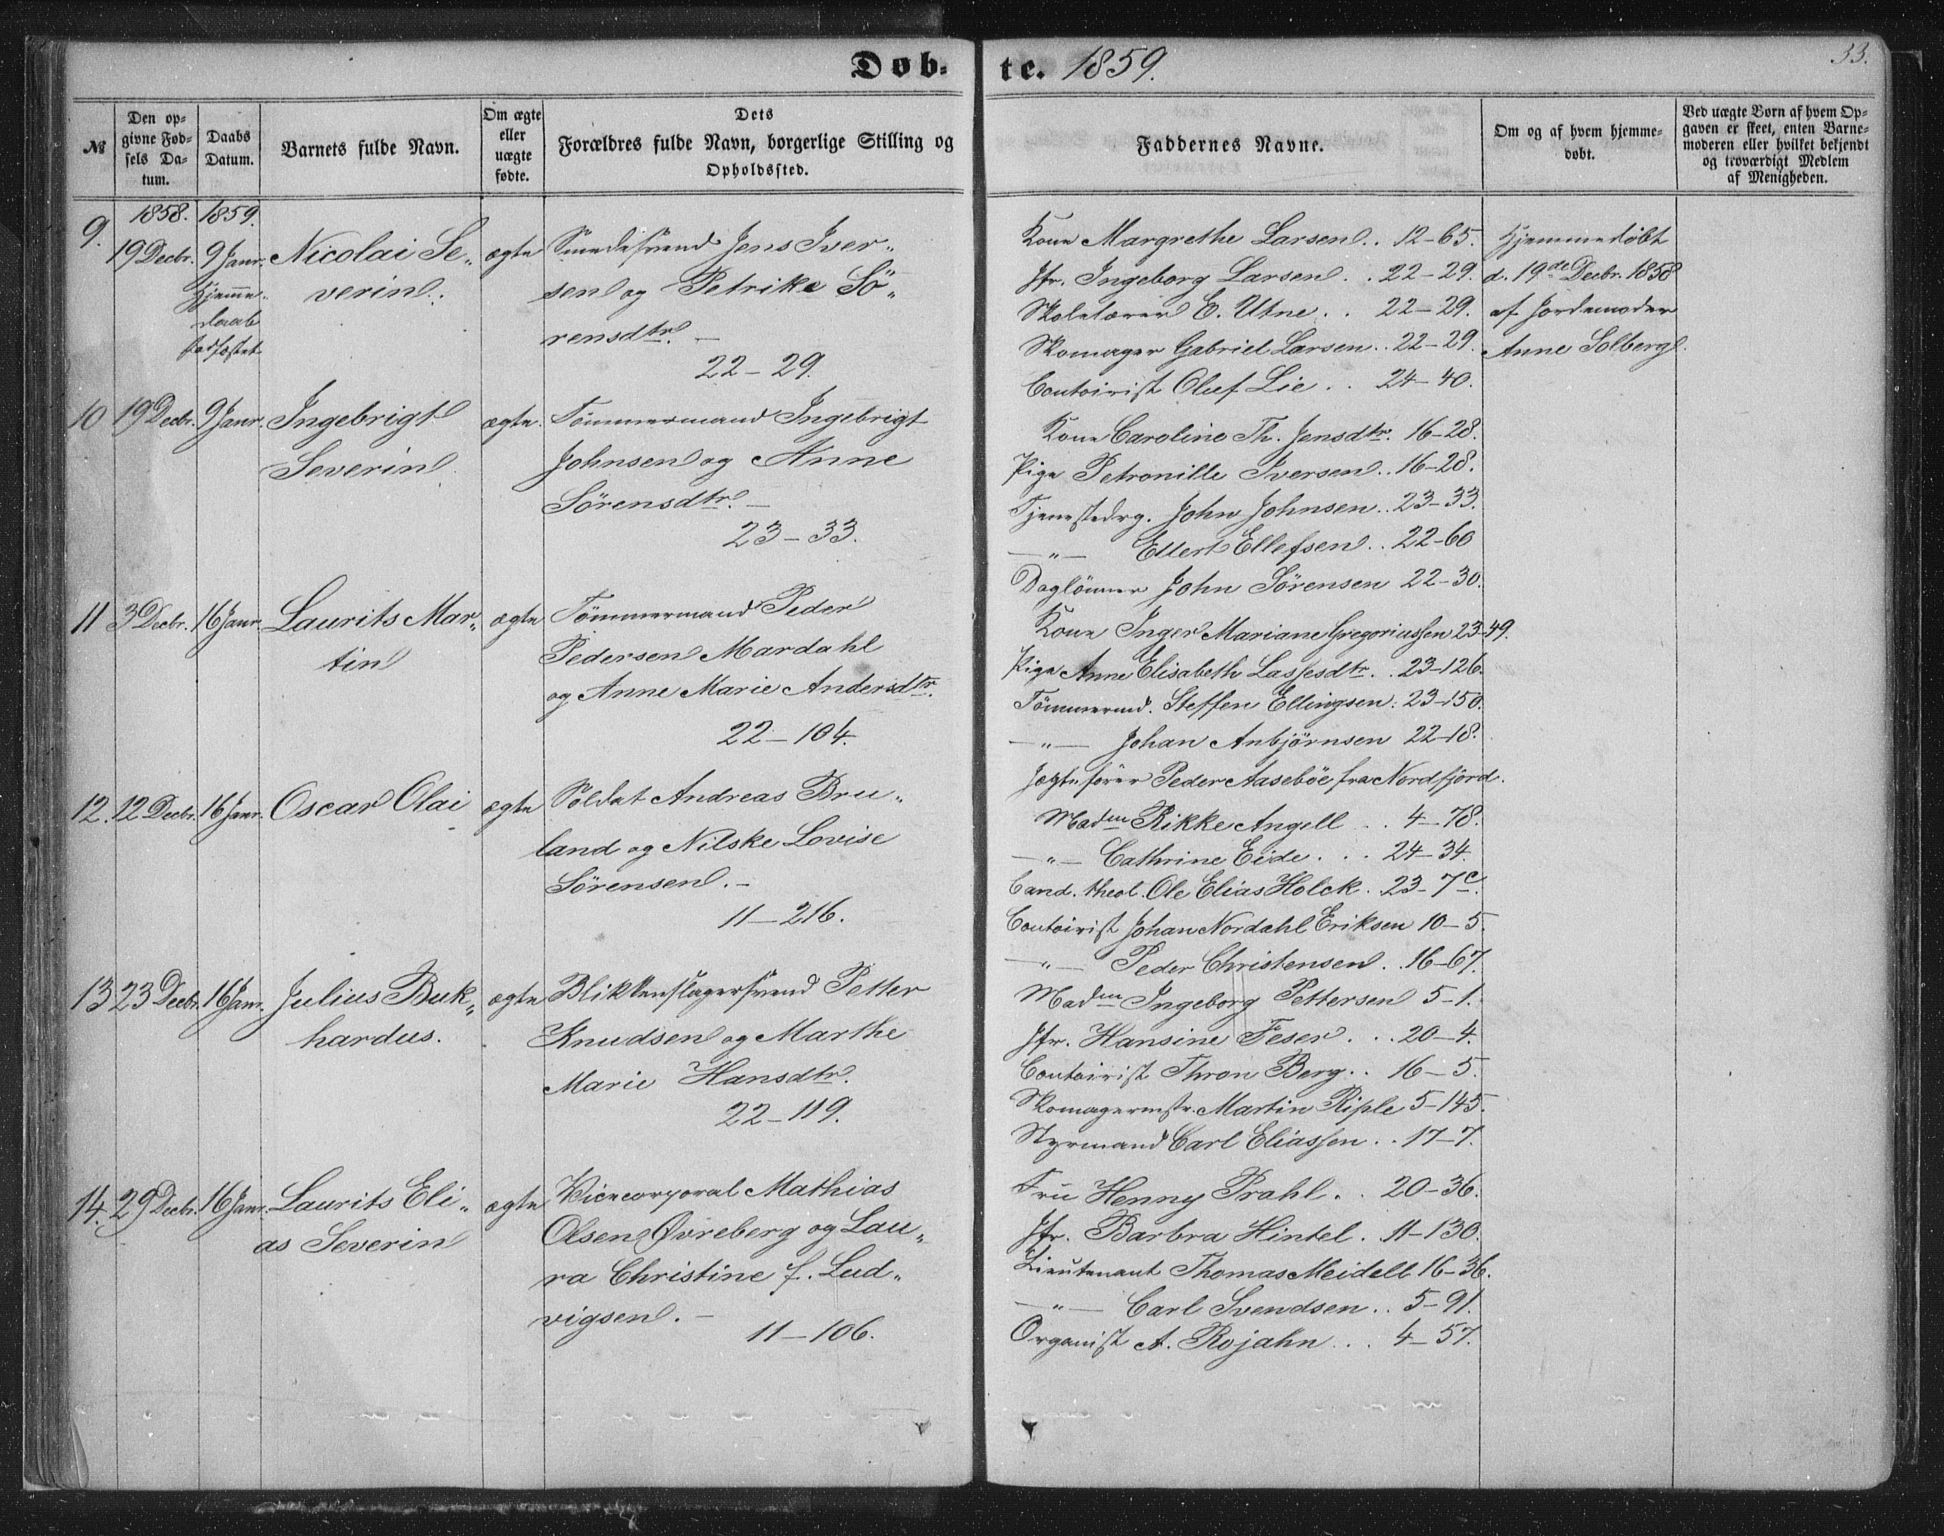 Døb-
te. 1859.
33.
№
Den op-
givne Fød-
sels Da-
tum.
Daabs
Datum.
Barnets fulde Navn.
Om ægte
eller
uægte
fødte.
Dets
Forældres fulde Navn, borgerlige Stilling og
Opholdssted.
Faddernes Navne.
Om og af hvem hjemme-
døbt.
Ved uægte Børn af hvem Op-
gaven er skeet, enten Barne-
moderen eller hvilket bekjendt
og troværdigt Medlem
af Menigheden.
1858. 1859.
9. 19 Decbr. 9 Janr. Nicolai Se- ægte Smedesvend Jens Iver-
Hjemme-
daab
stadfæstet
verin.
sen og Petrike Sö-
rensdtr. —
22 – 29.
Kone Margrethe Larsen . . 12–65.
Jfr. Ingeborg Larsen . . 22–29.
Skolelærer E. Utne . . 22–29.
Skomager Gabriel Larsen . . 22–29.
Contoirist Oluf Lie . . 24–40.
Hjemmedöbt
d. 19de Decbr. 1858
af Jordemoder
Anne Solberg.
10 19 Decbr. 9 Janr. Ingebrigt ægte. Tömmermand Ingebrigt
Severin
Johnsen og Anne
Sörensdtr. —
23 – 33.
Kone Caroline Th. Jensdtr. 16–28.
Pige Petronille Iversen . . 16–28.
Tjenestedrg. John Johnsen . . 23–33.
—„— Ellert Ellefsen . . 22–60
Daglönner John Sörensen 22–30.
11 3 Decbr. 16 Janr. Laurits Mar- ægte Tömmermand Peder
tin
Pedersen Mardahl
og Anne Marie Andersdtr.
22 – 104.
Kone Inger Mariane Gregoriussen 23–49.
Pige Anne Elisabeth Lassesdtr. . . 23–126.
Tömmermd. Steffen Ellingsen . 23–150.
—„— Johan Anbjörnsen 22–18.
Jægtefører Peder Aasebøe fra Nordfjord.
12. 12 Decbr. 16 Janr. Oscar Olai ægte Soldat Andreas Bru-
land og Nilske Lovise
Sörensen. —
11 – 216.
Madm Rikke Angell . . . 4–78.
—„— Cathrine Eide . . . 24–34.
Cand. theol. Ole Elias Holck . 23–7c.
Contoirist Johan Nordahl Eriksen 10–5.
—„— Peder Christensen . . 16–67.
13 23 Decbr. 16 Janr. Julius Buk- ægte Blikkenslagersvend Petter
hardus.
Knudsen og Marthe
Marie Hansdtr.
22 – 119.
Madm Ingeborg Pettersen 5–1.
Jfr. Hansine Feser . . . 20–4.
Contoirist Thron Berg . . 16–5.
Skomagermstr. Martin Riple 5–145.
Styrmand Carl Eliassen . . 17–7.
14. 29 Decbr. 16 Janr. Laurits Eli- ægte Vicecorporal Mathias
as Severin
Olsen Øvreberg og Lau-
ra Christine f. Lud-
vigsen. —
11 – 106.
Fru Henny Prahl . . 20–36.
Jfr. Barbra Hintel . 11–130.
Lieutenant Thomas Meidell 16–36.
—„— Carl Svendsen . . 5–91.
Organist A. Rojahn . . . 4–57.